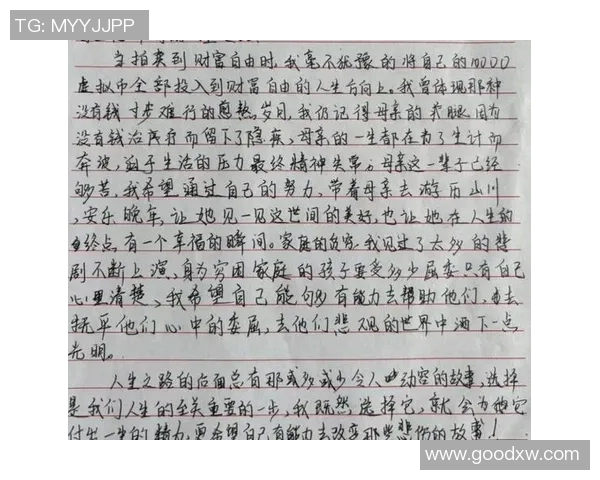 TG: MYYJJPP
当拍卖到财富自由时,我毫不犹豫的将自己的10000
虚拟币全部投入到财富自由的人生方向上。我曾体现那种
没有钱寸步难行的 岁月,我仍记得母亲的 腿因为
没有钱治疗而留下了隐疾、母亲的一生都在为了生计而
奔波,迫于生活的压力最终精神失常。母亲这一辈子已经
够苦,我希望通过自己的努力,带着母亲去游历山川
,安乐晚年,让她见一见这世间的美好,也让她在人生的
终点,有一个幸福的瞬间。家庭的贫穷,我见过了太多的悲
剧不断上演,身为穷困家庭的孩子要受多少屈委只有自己
心里清楚、我希望自己能够有能力去帮助他们,去
抚平他们心中的委屈,去他们悲观的世界中洒下一点
光明。
人生之路的后面总有那或多或少令人动容的故事,选择
是我们人生的至关重要的一步,我既然选择它,就会为他
付出一生的精力,更希望自己有能力去改变那些悲伤的故事!
www.goodxw.com